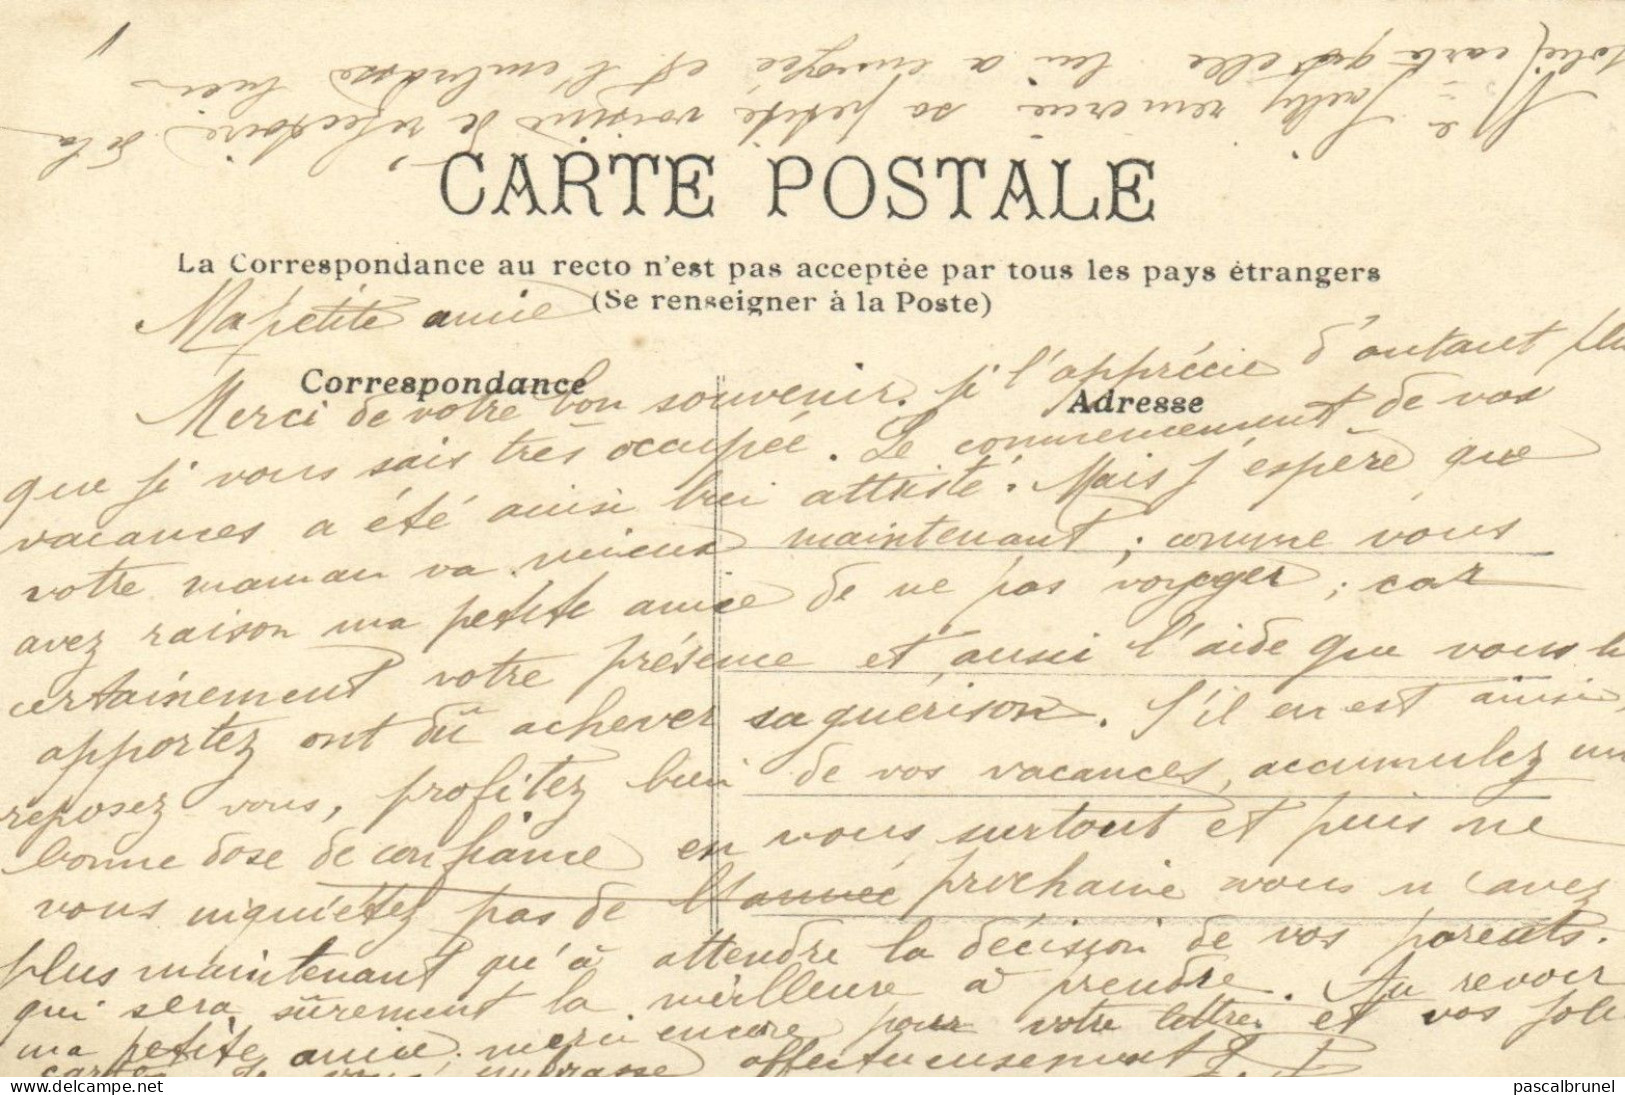 CARTE POSTALE
La Correspondance au recto n'est pas acceptée par tous les pays étrangers
(Se renseigner à la Poste)
Correspondance
Adresse
Ma petite amie
Merci de votre bon souvenir. Je l'apprécie d'autant plu
que je vous sais très occupée. Le commencement de vos
vacances a été ainsi bien attristé. Mais j'espère que
votre maman va mieux maintenant; comme vous
avez raison ma petite amie de ne pas voyager; car
certainement votre présence et aussi l'aide que vous l
apportez ont dû achever sa guérison. S'il en est ainsi,
reposez vous, profitez bien de vos vacances, accumulez un
bonne dose de confiance en vous surtout et puis ne
vous inquiétez pas de l'année prochaine vous n'avez
plus maintenant qu'à attendre la décision de vos parents.
qui sera sûrement la meilleure à prendre. Au revoir
ma petite amie. merci encore pour votre lettre et vos joli
cartes Je vous embrasse affectueusement
remercie sa petite voisine de réfectoire de la
jolie carte qu'elle lui a envoyée et l'embrasse bien
pascalbrunel